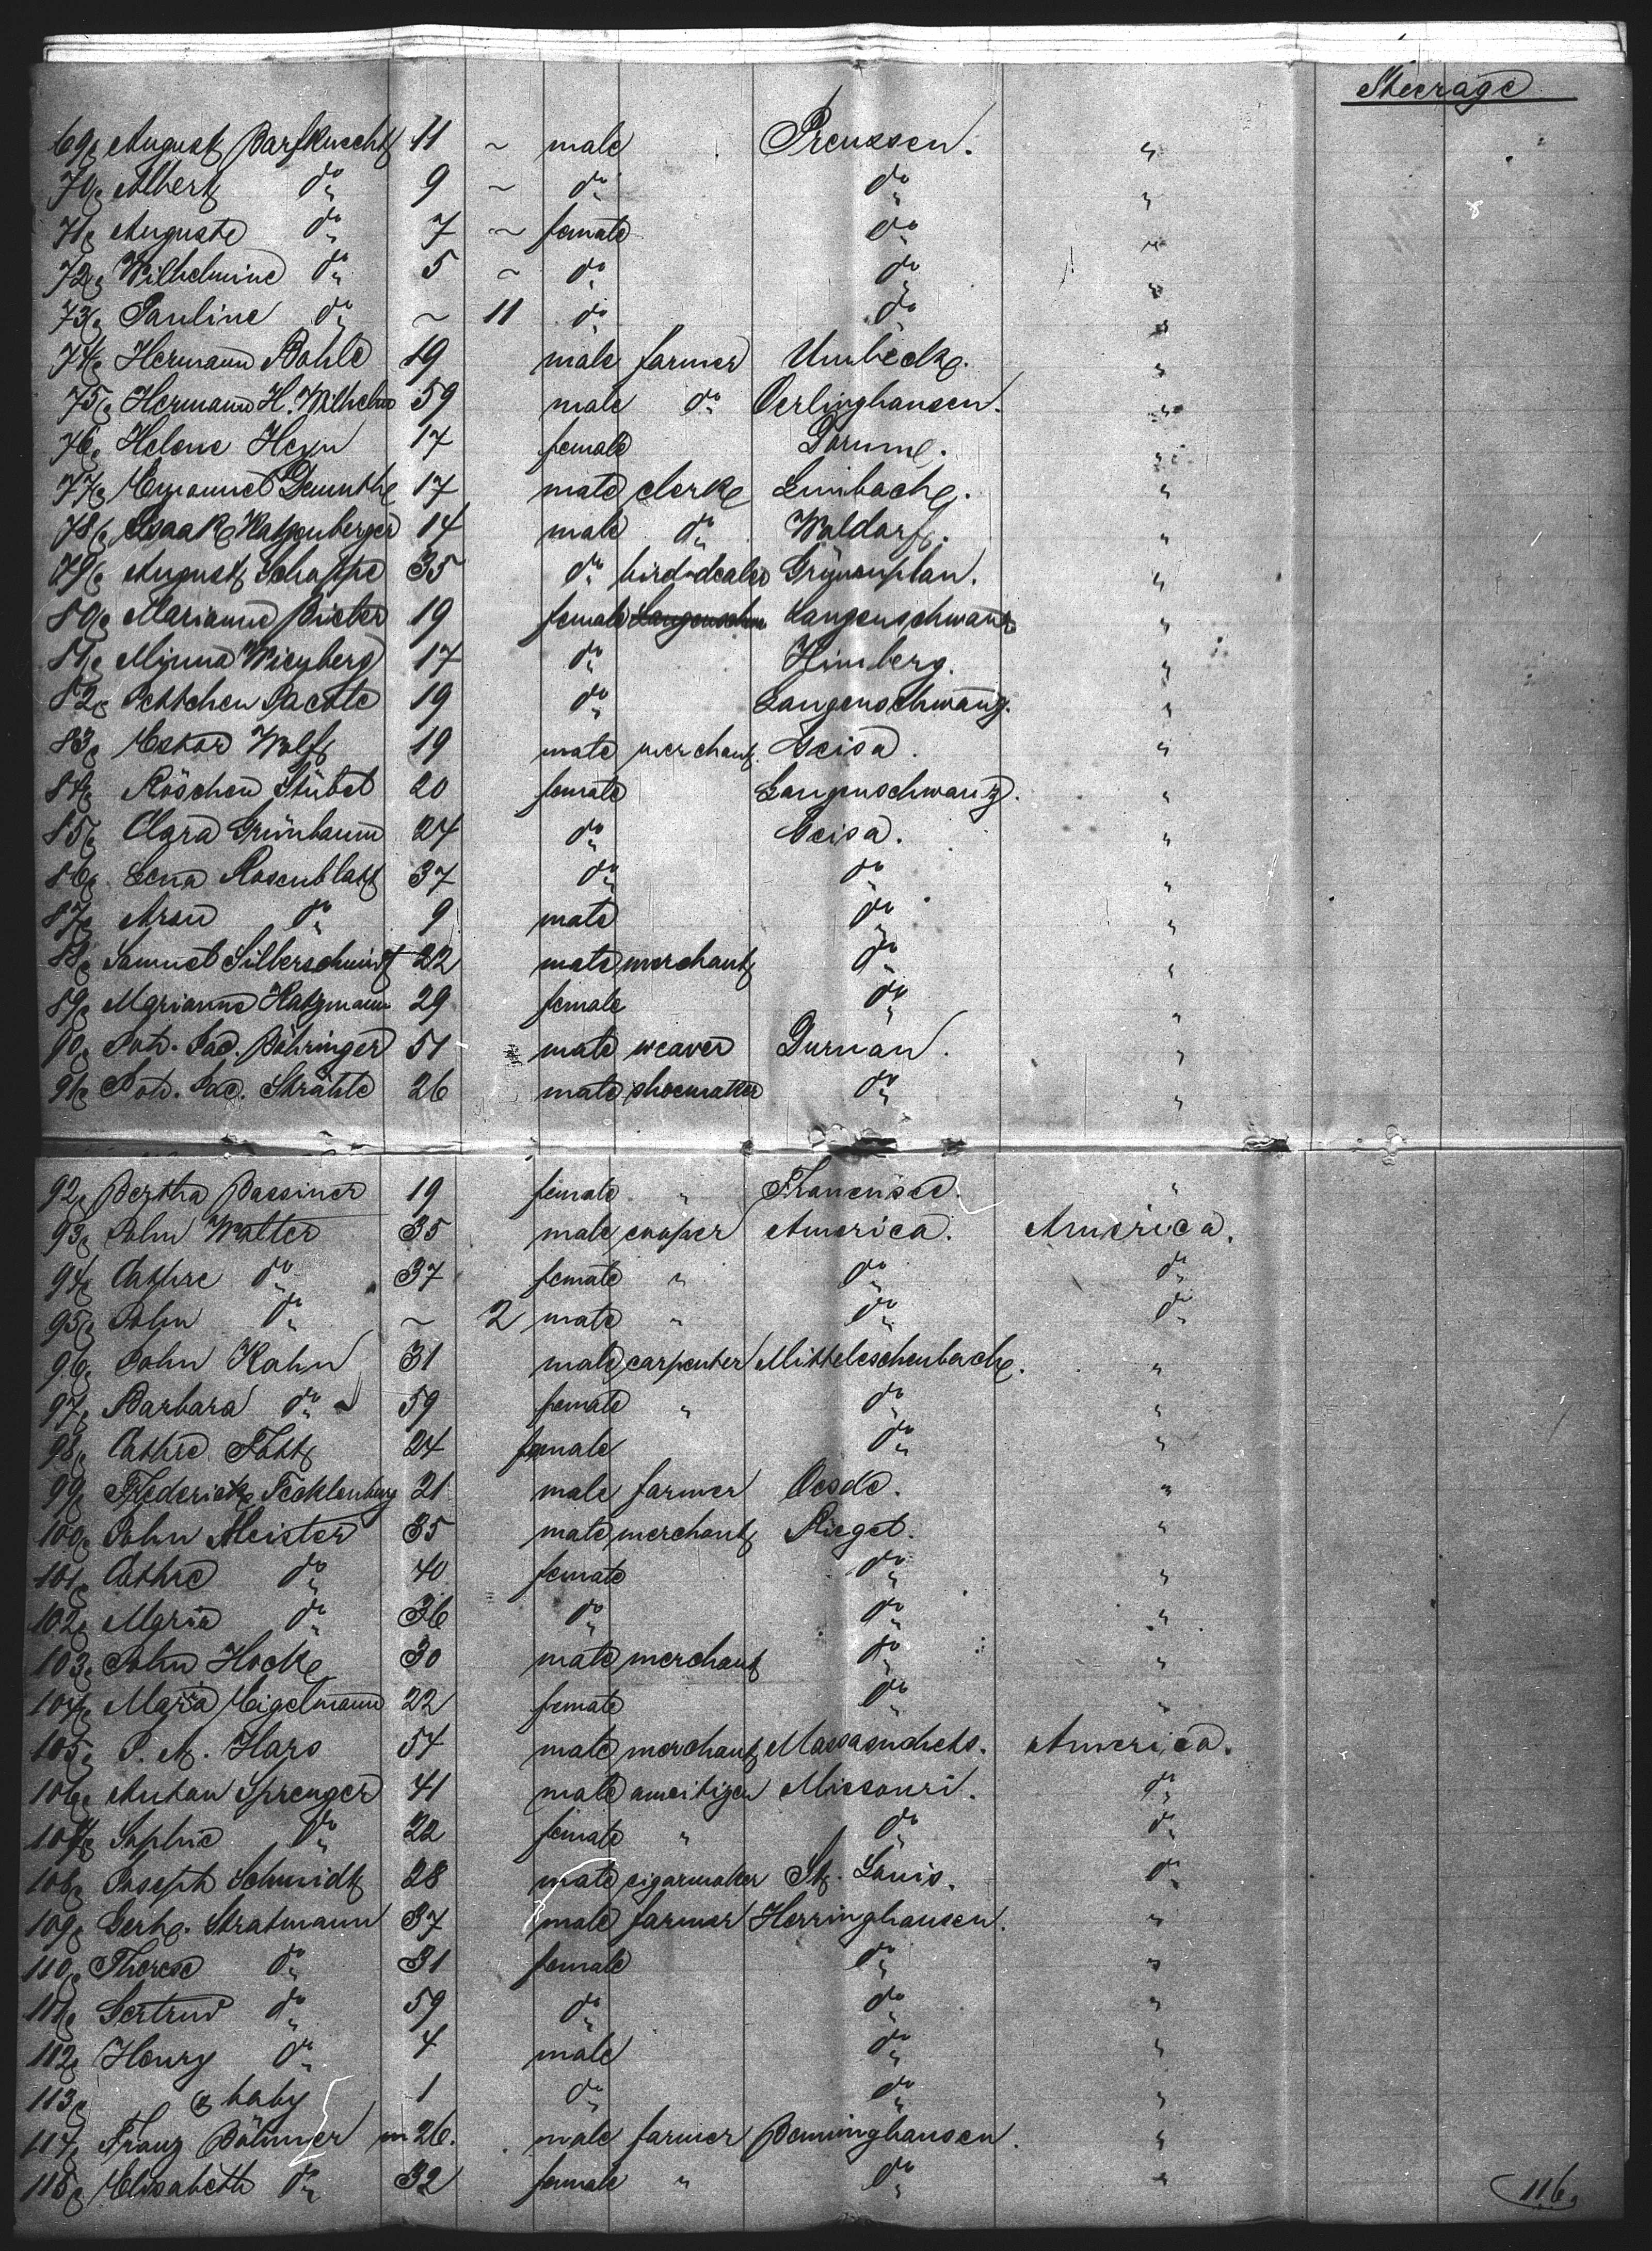 Steerage
69, August Barfknecht 11 ~ male Preussen. "
70, Albert do 9 ~ do do "
71, Auguste do 7 ~ female do "
72, Wilhelmine do 5 ~ do do "
73, Pauline do ~ 11 do do "
74, Hermann Bohle 19 male farmer Umbeck. "
75, Hermann H. Wilhelm 59 male do Oerlinghausen. "
76, Helene Heyn 17 female Dorum. "
77, Emanuel Demuth 17 male clerk Limbach. "
78, Isaak Katzenberger 14 male do Waldorf. "
79, August Schoppe 35 do bird-dealer Grünenplan. "
80, Marianne Bieler 19 female Langenschwanz "
81, Minna Weyberg 17 do Himberg. "
82, Bettchen 19 do Langenschwanz. "
83, Wolf 19 male merchant Geisa. "
84, Röschen Stübel 20 female Langenschwanz. "
85, Clara Grünbaum 24 do Geisa. "
86, Lena Rosenblatt 37 do do "
87, Aron do 9 male do "
88, Samuel Silberschmidt 22 male merchant do "
89, Marianne Katzmann 29 female do "
90, Joh. Jac. Böhringer 51 male weaver Durnan. "
91, Joh. Jac. Strähle 26 male shoemaker do "
92, Bertha Bassiner 19 female " Francensee. "
93, John Walter 35 male cooper America. America.
94, Cathre do 37 female " do do
95, John do ~ 2 male " do do
96, John Kahn 31 male carpenter Mitteleschenbach. "
97, Barbara do 59 female " do "
98, Cathre Fott 24 female do "
99, Frederick Tecklenburg 21 male farmer Oesde. "
100, John Meister 35 male merchant Riegel. "
101, Cathre do 40 female do "
102, Maria do 36 do do "
103, John Hock 30 male merchant do "
104, Maria Eigelmann 22 female do "
105, P. A. Hars 54 male merchant Massasuchets. America.
106, Anton Sprenger 41 male Missouri. do
107, Sophie do 22 female " do do
108, Joseph Schmidt 28 male cigarmaker St. Louis. do
109, Gerh. Stratmann 37 male farmer Herringhausen. "
110, Therese do 31 female do "
111, Gertrud do 59 do do "
112, Henry do 4 male do "
113, & baby 1 do do "
114, Franz Böhmer m 26. male farmer Benninghausen. "
115, Elisabeth do 32 female " do "
116,